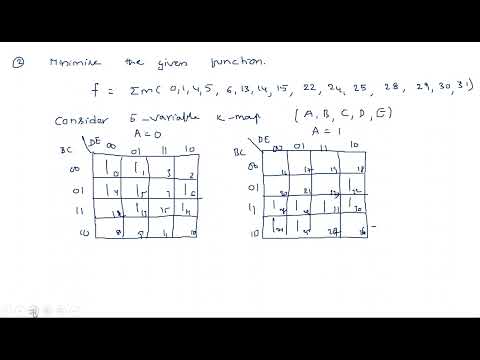 ② Minimise the given function.
f = Σm( 0,1,4,5, 6,13,14,15, 22, 24, 25, 28, 29,30,31)
Consider 5-variable K-map (A, B, C, D, E)
A=0 A=1
BC DE 00 01 11 10 BC DE 00 01 11 10
00 1 0 1 1 3 2 00 16 17 19 18
01 1 4 1 5 7 1 6 01 20 21 23 1 22
11 12 1 13 15 1 14 11 1 28 1 1 31 1 30
10 8 9 11 10 10 1 24 1 26